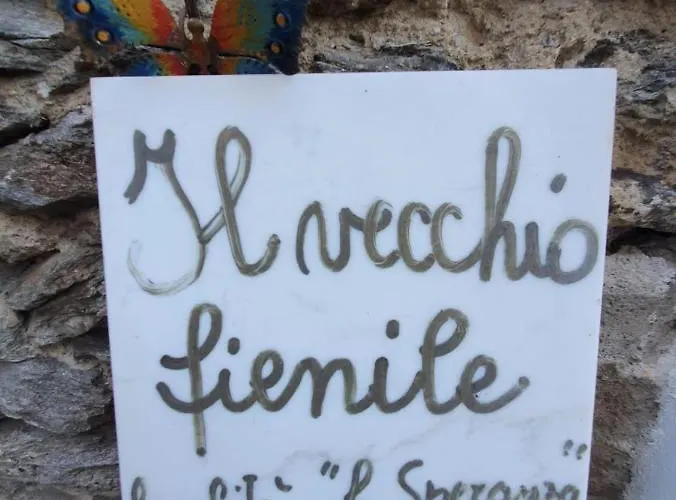 Il vecchio
fienile
" Speranza "